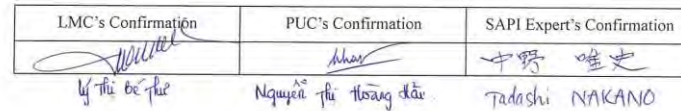 LMC's Confirmation PUC's Confirmation SAPI Expert's Confirmation
中野 唯史
Lý Thị Bé Thư Nguyễn Thị Hoàng Hảo Tadashi NAKANO